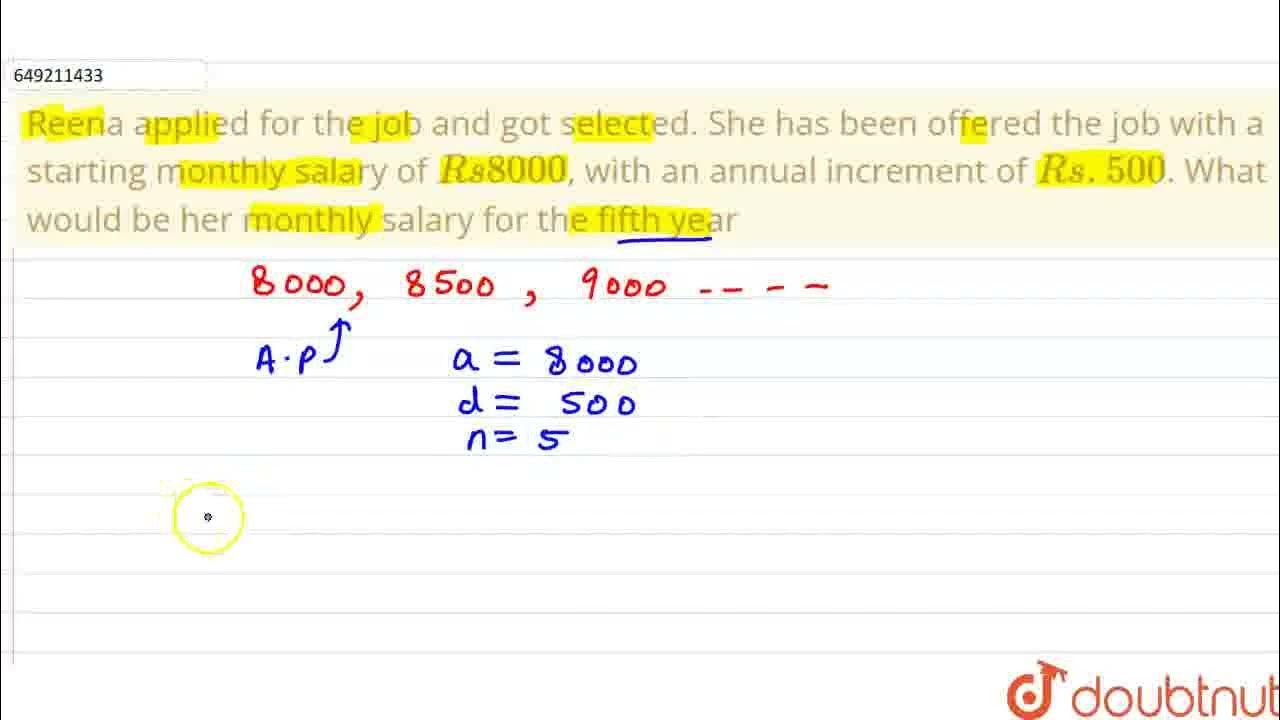 649211433
Reena applied for the job and got selected. She has been offered the job with a
starting monthly salary of Rs8000, with an annual increment of Rs. 500. What
would be her monthly salary for the fifth year
8000, 8500, 9000 -- - -
A.P a = 8000
d = 500
n = 5
doubtnut